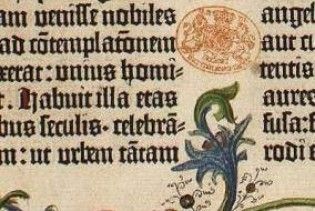 am venisse nobiles
ad cõtemplatõnem
xerat: unius homi-
t. Habuit illa etas
bus seculis. celebrã-
m: ut urbem tãtam
angel
aut cu
tentis
aures
fusa: f
rodi e